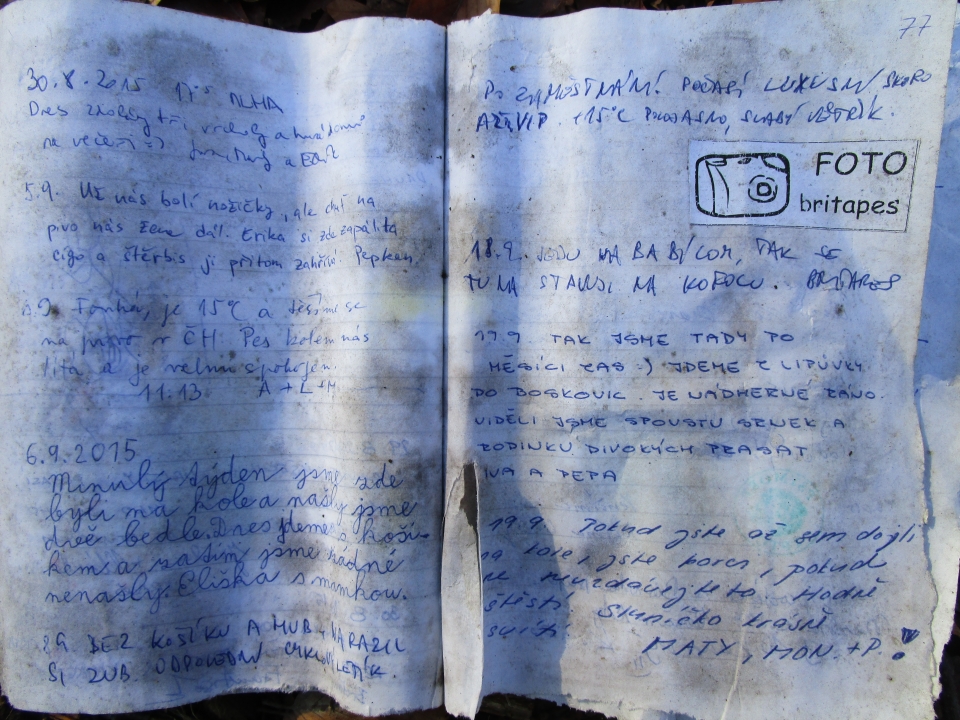 30.8.2015 17⁰⁵ MLHA
Dnes zkoušky tři, vrcholy a
na večeři =) a
5.9. Už nás bolí nožičky, ale dál na
pivo nás žene dál. Erika si zde zapálila
cigo a Štěrbis ji přitom zahřívá. Pepkan
Fouká, je 15°C a těšíme se
na pivo v ČH. Pes kolem nás
lítá a je velmi spokojen.
11.13 A + L + M
6.9.2015
Minulý týden jsme zde
byli na kole a našly jsme
dvě bedle. Dnes jdeme s koší-
kem a zatím jsme žádné
nenašly. Eliška s mamkou.
BEZ KOŠÍKU A HUB, NARAZIL
SI ZUB ODPOLEDNÍ CYKLOLETÍK.
77
PO ZAMOŠTNÁNÍ! POČASÍ LUXUSNÍ SKORO
AŽ VIP. +15°C POLOJASNO, SLABÝ VĚTŘÍK.
FOTO
britapes
18.9. JEDU NA BABÍ LOM, TAK SE
TU NA STAVUJI NA KOFOLU. BRITAPES
19.9. TAK JSME TADY PO
MĚSÍCI ZAS :) JDEME Z LIPŮVKY
DO BOSKOVIC. JE NÁDHERNÉ RÁNO.
VIDĚLI JSME SPOUSTU SRNEK A
RODINKU DIVOKÝCH PRASAT
IVA A PEPA
19.9. Pokud jste až sem dojeli
na kole, jste borci, pokud
ne nevzdávejte to. Hodně
štěstí. Sluníčko krásně
svítí.
MATY, MON. + P.!